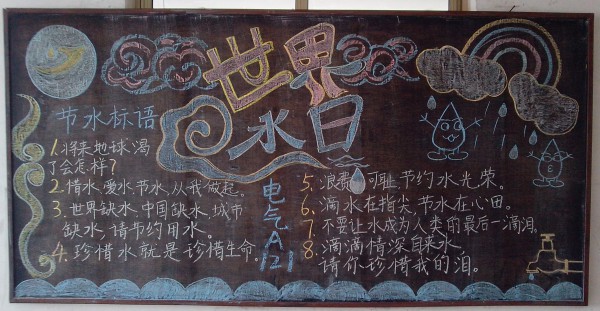 世界
水日
节水标语
1.将来地球渴
了会怎样?
2.惜水、爱水、节水,从我做起。
3.世界缺水、中国缺水、城市
缺水,请节约用水。
4.珍惜水就是珍惜生命.
电气A
121
5.浪费 可耻、节约水光荣。
6.滴水在指尖、节水在心田。
7.不要让水成为人类的最后一滴泪。
8.滴滴情深自来水、
请你珍惜我的泪。